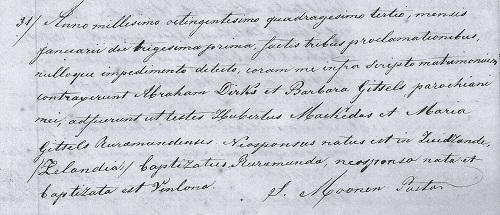 31/ Anno millesimo octingentesimo quadragesimo tertio, mensis
Januarii die trigesima prima, factis tribus proclamationibus,
nulloque impedimento detecto, coram me infra scripto matrimonium
contraxerunt Abraham Dirks et Barbara Gitsels parochiani
mei, adfuerunt et testes Hubertus Machëdas et Maria
Gitsels Ruramundenses. Neosponsus natus est in Zuidzande,
/Zelandia/ baptizatus Ruramunda, neosponsa nata et
baptizata est Venlona. J. Moonen Pastor